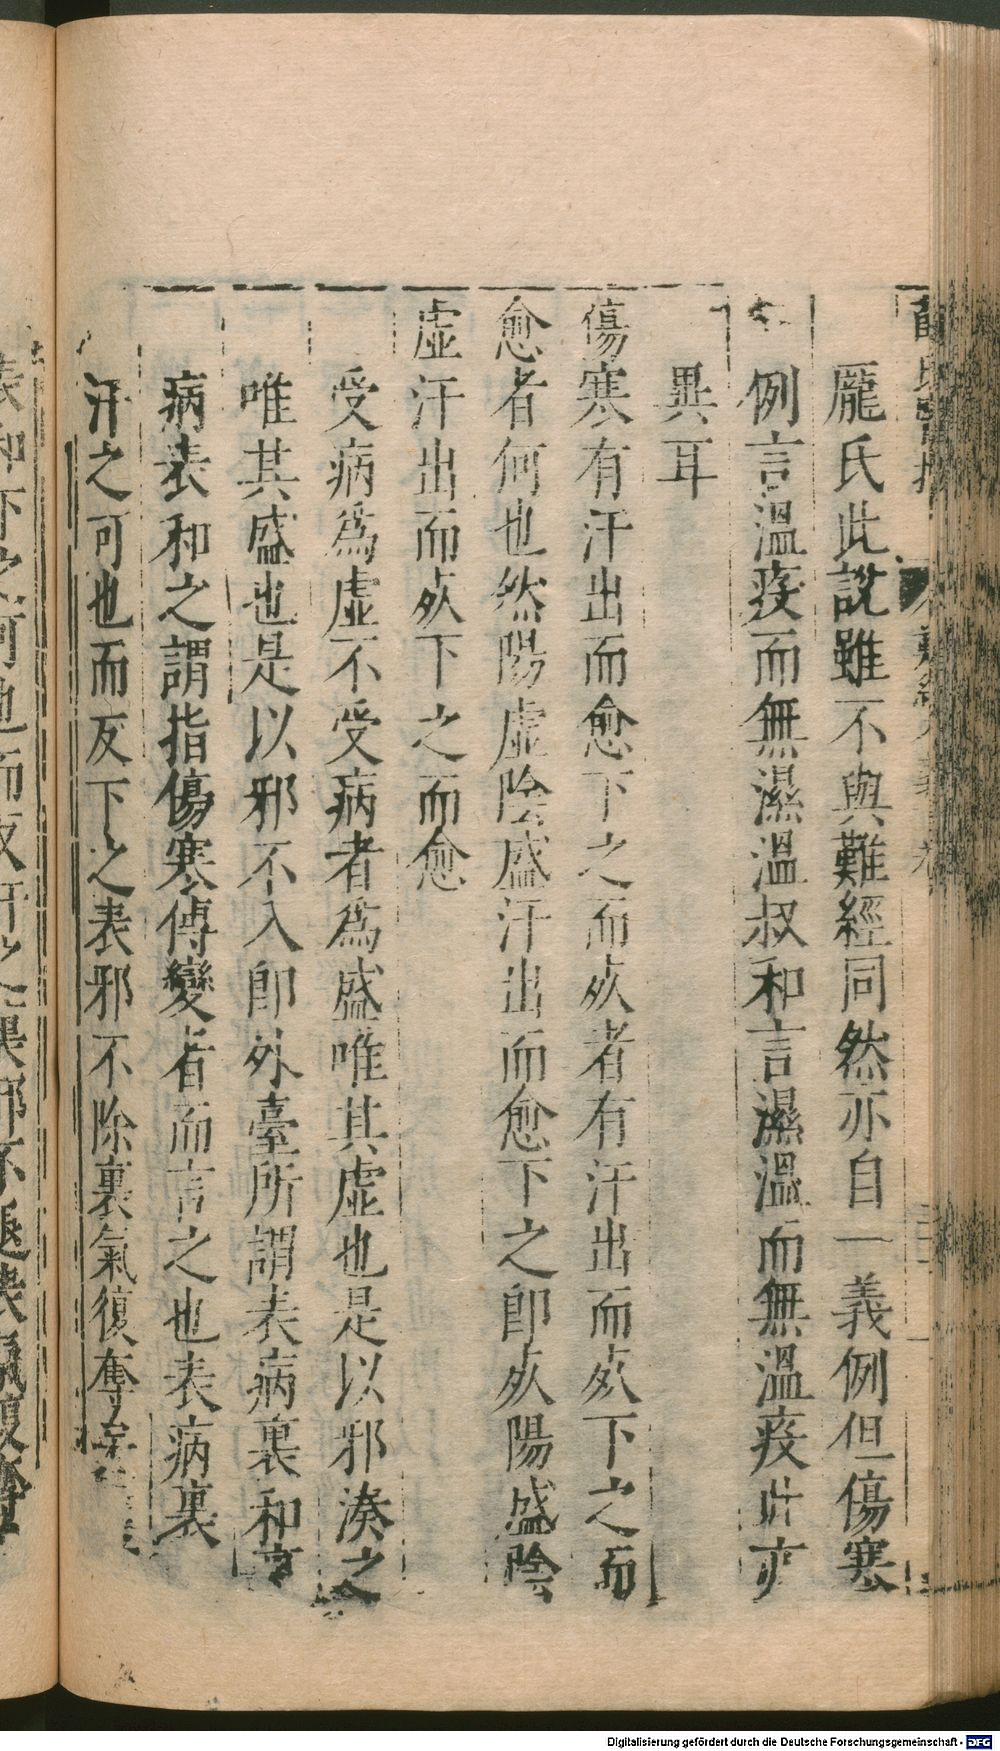 龐氏此說雖不與難經同然亦自一義例但傷寒
例言溫疫而無濕溫叔和言濕溫而無溫疫此亦
異耳
傷寒有汗出而愈下之而死者有汗出而死下之而
愈者何也然陽虛陰盛汗出而愈下之即死陽盛陰
虛汗出而死下之而愈
受病爲虛不受病者爲盛唯其虛也是以邪湊之
唯其盛也是以邪不入即外臺所謂表病裏和
病表和之謂指傷寒傳變者而言之也表病裏
汗之可也而反下之表邪不除裏氣復奪
表和下之可也而反汗之裏邪不退表氣復奪
Digitalisierung gefördert durch die Deutsche Forschungsgemeinschaft - DFG